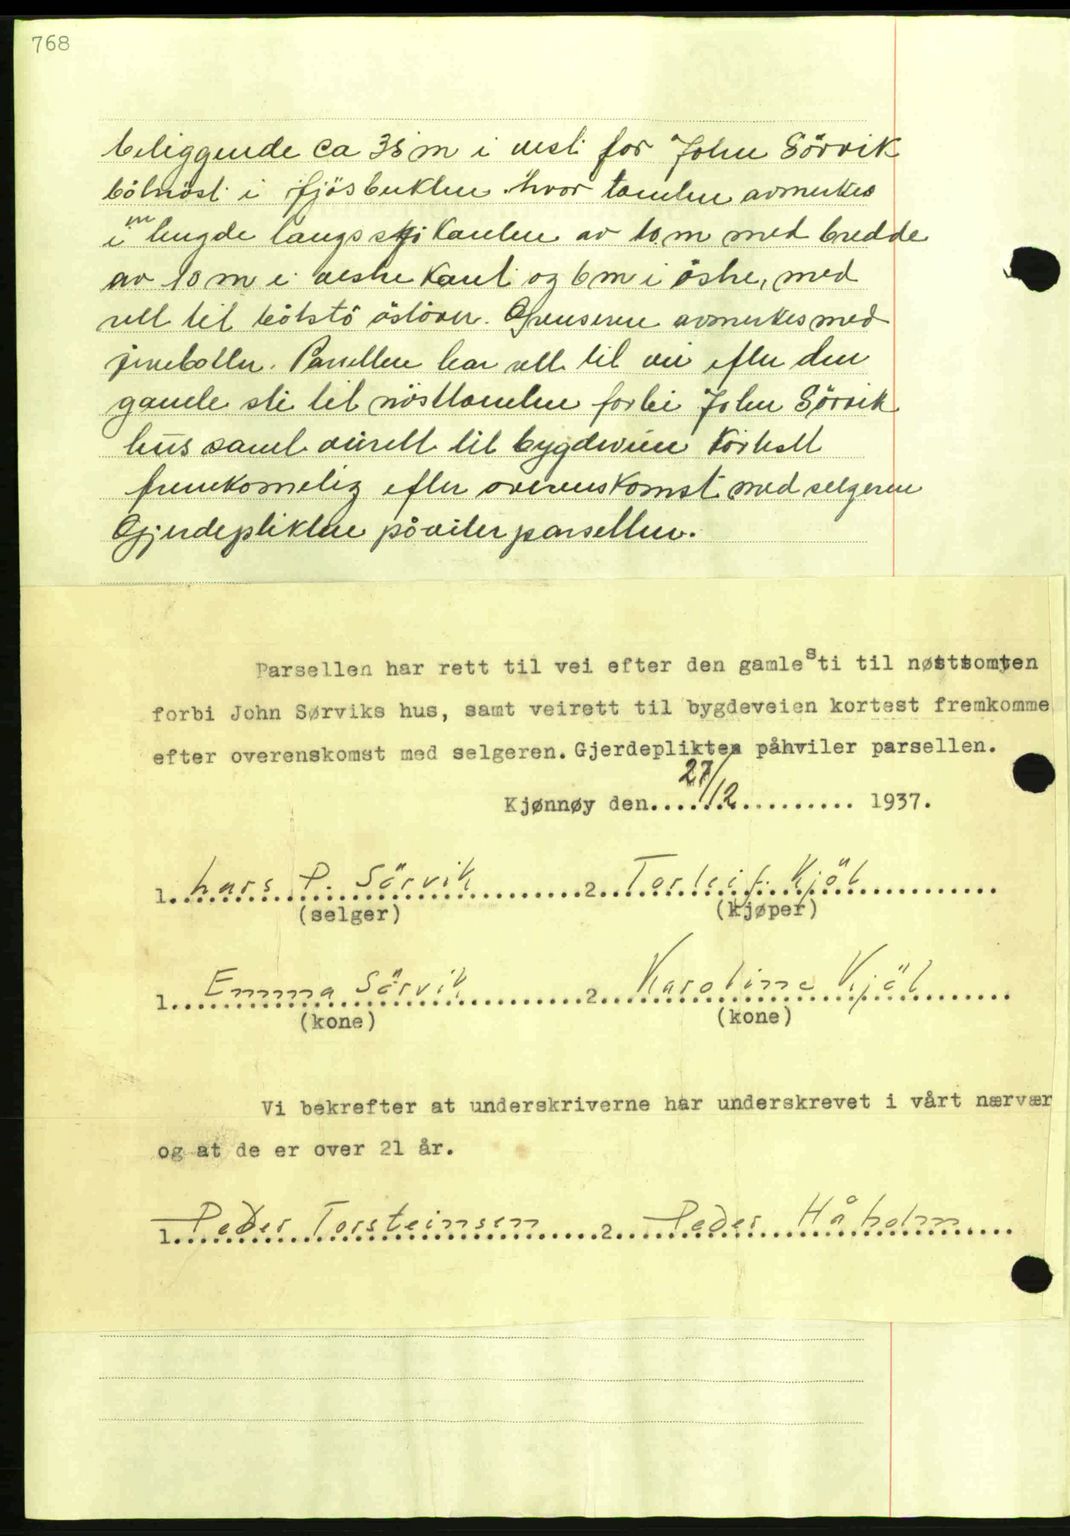 768
beliggende ca 35 m i vest for John Sörvik
båtnöst i fjösbukten hvor tomten avmerkes
i en lengde langs sjökanten av 10 m med bredde
av 10 m i vestre kant og 6 m i östre, med
rett til båtstö östover. Grensene avmerkes med
jernbolter. Parsellen har rett til vei efter den
gamle sti til nösttomten forbi John Sörvik
hus samt veirett til bygdeveien kortest
fremkomelig efter overenskomst med selgeren
Gjerdeplikten påviler parsellen.
Parsellen har rett til vei efter den gamle sti til nøsttomten
forbi John Sørviks hus, samt veirett til bygdeveien kortest fremkomme
efter overenskomst med selgeren. Gjerdeplikten påhviler parsellen.
Kjønnøy den....27/12.......... 1937.
1. Lars P. Sörvik 2. Torleif Kjöl
(selger) (kjøper)
1. Emma Sörvik 2. Karoline Kjöl
(kone) (kone)
Vi bekrefter at underskriverne har underskrevet i vårt nærvær
og at de er over 21 år.
1. Peder Torsteinsen 2. Peder Håholm